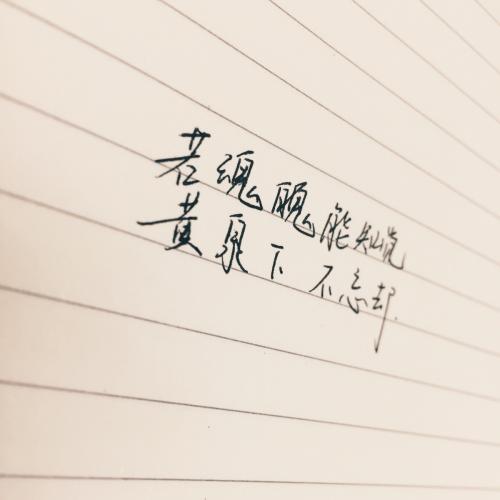 若魂魄能知晓
黄泉下 不忘却.